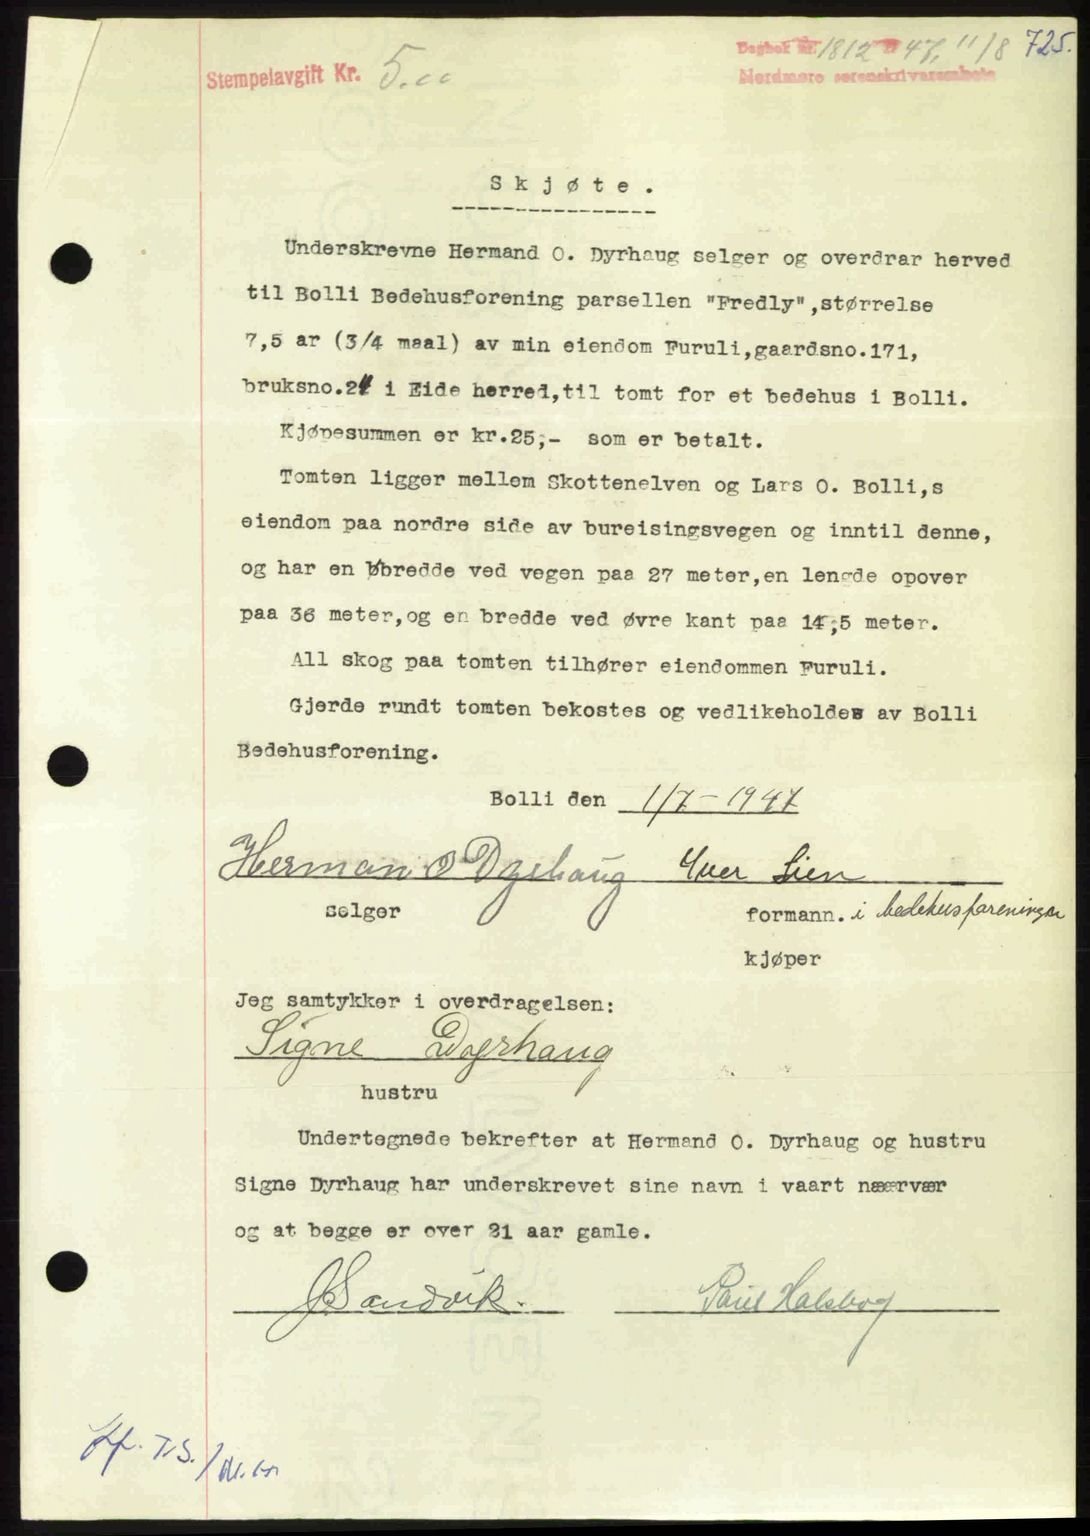 Stempelavgift Kr. 5.00
Dagbok nr. 1812 47, 11/8 725.
Nordmøre sorenskriverembete
Skjøte.
Underskrevne Hermand O. Dyrhaug selger og overdrar herved
til Bolli Bedehusforening parsellen "Fredly",størrelse
7,5 ar (3/4 maal) av min eiendom Furuli,gaardsno.171,
bruksno.24 i Eide herred,til tomt for et bedehus i Bolli.
Kjøpesummen er kr.25;- som er betalt.
Tomten ligger mellem Skottenelven og Lars O. Bolli,s
eiendom paa nordre side av bureisingsvegen og inntil denne,
og har en bredde ved vegen paa 27 meter,en lengde opover
paa 36 meter,og en bredde ved øvre kant paa 14,5 meter.
All skog paa tomten tilhører eiendommen Furuli.
Gjerde rundt tomten bekostes og vedlikeholdes av Bolli
Bedehusforening.
Bolli den 1/7-1947
Herman O Dyrhaug Iver Lien
selger formann. i bedehusforeningen
kjøper
Jeg samtykker i overdragelsen:
Signe Dyrhaug
hustru
Undertegnede bekrefter at Hermand O. Dyrhaug og hustru
Signe Dyrhaug har underskrevet sine navn i vaart næærvær
og at begge er over 21 aar gamle.
J Sandvik. Paul Halsbog